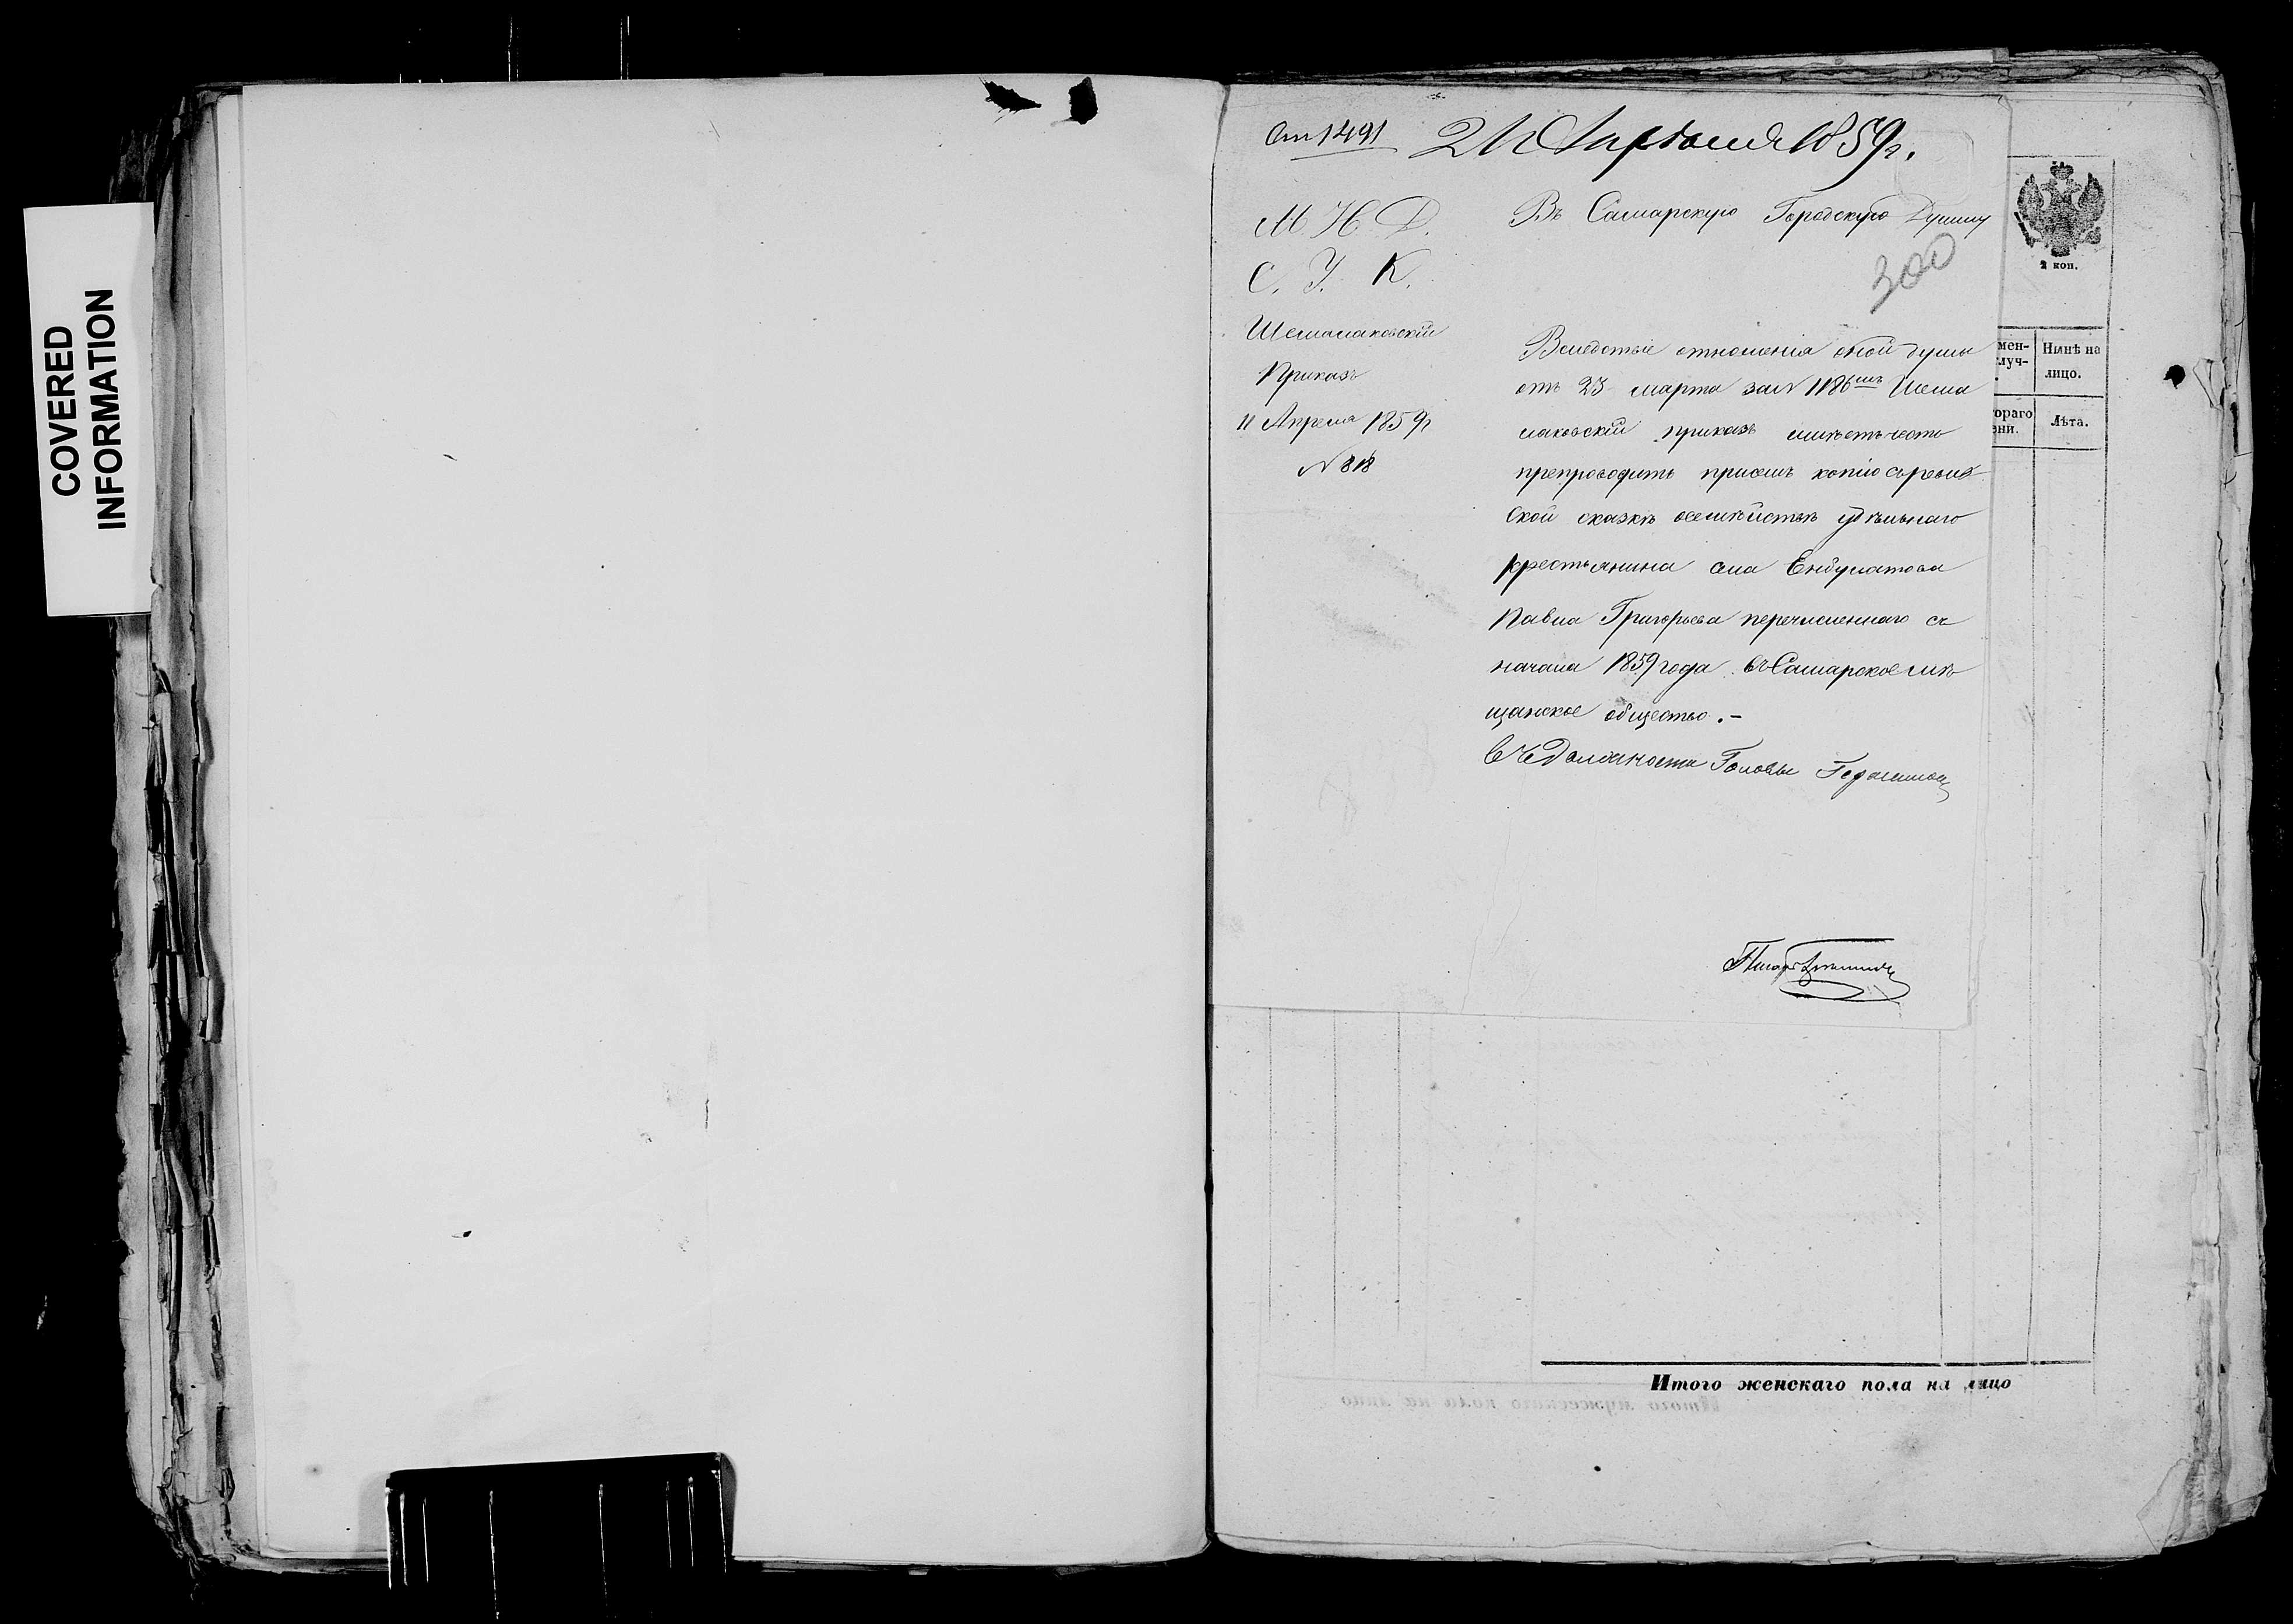 COVERED
INFORMATION
Вт 1491 21 Апреля 1859 г.
М. И. Д.
С. У. К.
Шемалаковскій
Приказъ
11 Апреля 1859 г
№ 818
Въ Самарскую Городскую Думу
300
Вследствіе отношенія оной думы
отъ 23 марта за № 1186мъ Шема
лаковскій приказъ имѣетъ честь
препроводить присемъ копію съревиз
ской сказки осемѣйствѣ удѣльнаго
крестьянина села Енбулатова
Павла Григорьева перечисленнаго съ
начала 1859 года въ Самарское мѣ
щанское общество.-
Должности Головы Герасимов
Писарь
2 коп.
мен-
луч-
Нынѣ на
лицо.
тораго
ени.
Лѣта.
Итого женскаго пола на лицо
Итого мужескаго пола на лицо